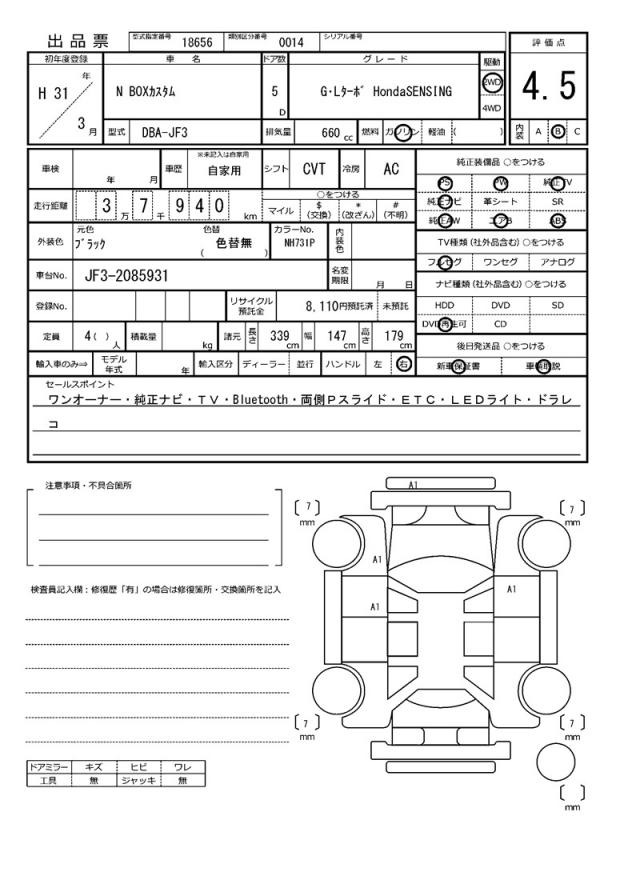 出品票 型式指定番号 18656 類別区分番号 0014 シリアル番号
初年度登録 車名 ドア数 グレード 駆動 評価点
H 31 年 3 月 N BOXカスタム 5 D G・Lターボ HondaSENSING 2WD 4WD 4.5
型式 DBA-JF3 排気量 660 cc 燃料 ガソリン 軽油 ( ) 内装 A B C
車検 年 月 車歴 ※未記入は自家用 自家用 シフト CVT 冷房 AC 純正装備品 ○をつける
PS PW 純正TV
走行距離 3 万 7 千 9 4 0 km ○をつける 純正ナビ 革シート SR
マイル $ (交換) * (改ざん) # (不明) 純正AW エアB ABS
外装色 元色 ブラック 色替 ( 色替無 ) カラーNo. NH731P 内装色 TV種類 (社外品含む) ○をつける
フルセグ ワンセグ アナログ
車台No. JF3-2085931 名変期限 月 日 ナビ種類 (社外品含む) ○をつける
登録No. リサイクル預託金 8,110円預託済 未預託 HDD DVD SD
DVD再生可 CD
定員 4 ( ) 人 積載量 kg 諸元 長さ 339 cm 幅 147 cm 高さ 179 cm 後日発送品 ○をつける
輸入車のみ⇒ モデル年式 年 輸入区分 ディーラー 並行 ハンドル 左 右 新車保証書 車輌取説
セールスポイント
ワンオーナー・純正ナビ・TV・Bluetooth・両側Pスライド・ETC・LEDライト・ドラレ
コ
注意事項・不具合箇所
A1
7 mm 7 mm
A1
検査員記入欄：修復歴「有」の場合は修復箇所・交換箇所を記入
A1
A1
7 mm 7 mm
ドアミラー キズ ヒビ ワレ
工具 無 ジャッキ 無
mm